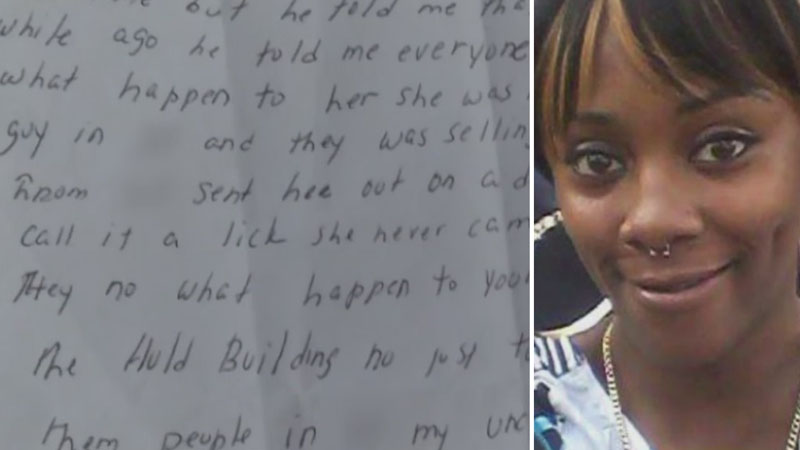 but he told me tha
while ago he told me everyone
what happen to her she was
guy in and they was selling
from sent hee out on a d
call it a lick she never cam
they no what happen to your
the Huld Building no just t
them people in my unc